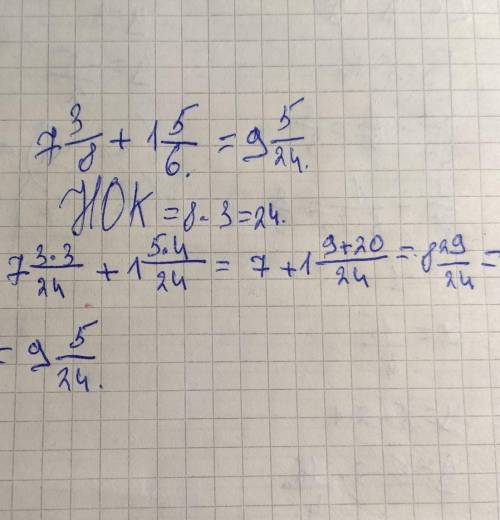 7 3/8 + 1 5/6. = 9 5/24.
НОК = 8 · 3 = 24.
7 3·3/24 + 1 5·4/24 = 7 + 1 9+20/24 = 8 29/24 =
= 9 5/24.